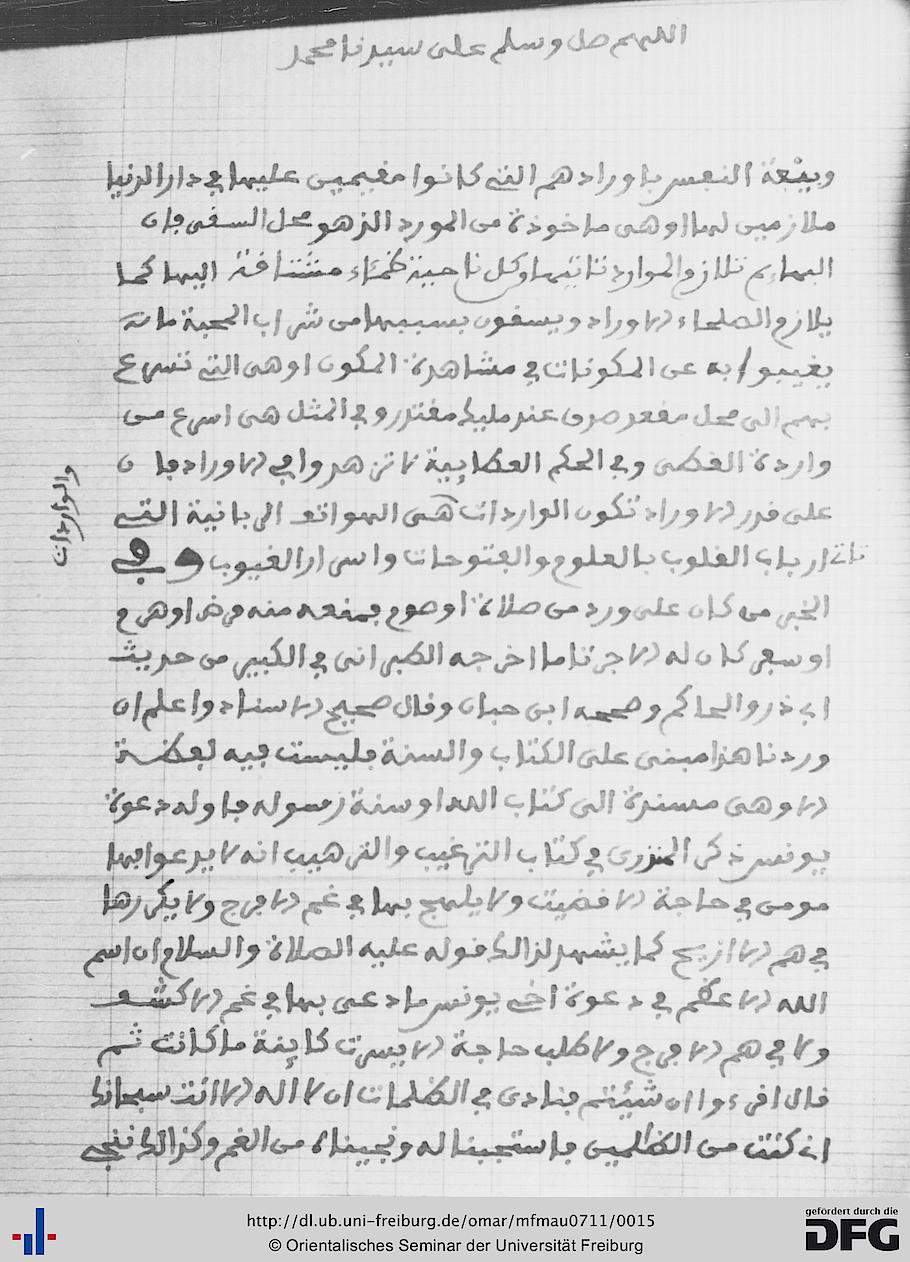 اللهم صل وسلم على سيدنا محمد
وبيعة النفس باورادهم التي كانوا مقيمين عليها في دار الدنيا
ملازمين لها اوهي ماخوذة من المورد الذهو محل السقي فان
البهايم تلازم الموارد تاتيها وكل ناحية ظمئاء مشتاقة اليها كما
يلازم الصلحاء الاوراد ويسقون بسببها من شراب المحبة ما به
يغيبوا به عن المكونات في مشاهدة المكون اوهي التي تسرع
بهم الى محل مقعد صدق عند مليك مقتدر وفي المثل هي اسرع من
واردة القطى وفي الحكم العطايية لا تزهدوا في الاوراد فان
على قدر الاوراد تكون الواردات هي الهواتف الربانية التي
والواردات
تاتي ارباب القلوب بالعلوم والفتوحات واسرار الغيوب وفي
الخبر من كان على ورد من صلاة او صوم فمنعه منه مرض اوهرم
او سفر كان له الاجر تاما اخرجه الطبراني في الكبير من حديث
ابي ذر والحاكم وصححه ابن حبان وقال صحيح الاسناد واعلم ان
وردنا هذا مبني على الكتاب والسنة فليست فيه لفظة
الا وهي مسندة الى كتاب الله او سنة رسوله فاوله دعوة
يونس ذكر المنذري في كتاب الترغيب والترهيب انه لا يدعوا بها
مومن في حاجة الا قضيت ولا يلهج بها في غم الا فرج ولا يكررها
في هم الا ازيح كما يشهد لذالك قوله عليه الصلاة والسلام ان اسم
الله الاعظم في دعوة اخي يونس ما دعى بها في غم الا كشف
ولا في هم الا فرج ولا طلب حاجة الا يسرت كاينة ما كانت ثم
قال اقرءوا ان شيئتم فنادى في الظلمات ان لا اله الا انت سبحانك
اني كنت من الظلمين فاستجبنا له ونجيناه من الغم وكذالك ننجي
http://dl.ub.uni-freiburg.de/omar/mfmau0711/0015
© Orientalisches Seminar der Universität Freiburg
gefördert durch die
DFG